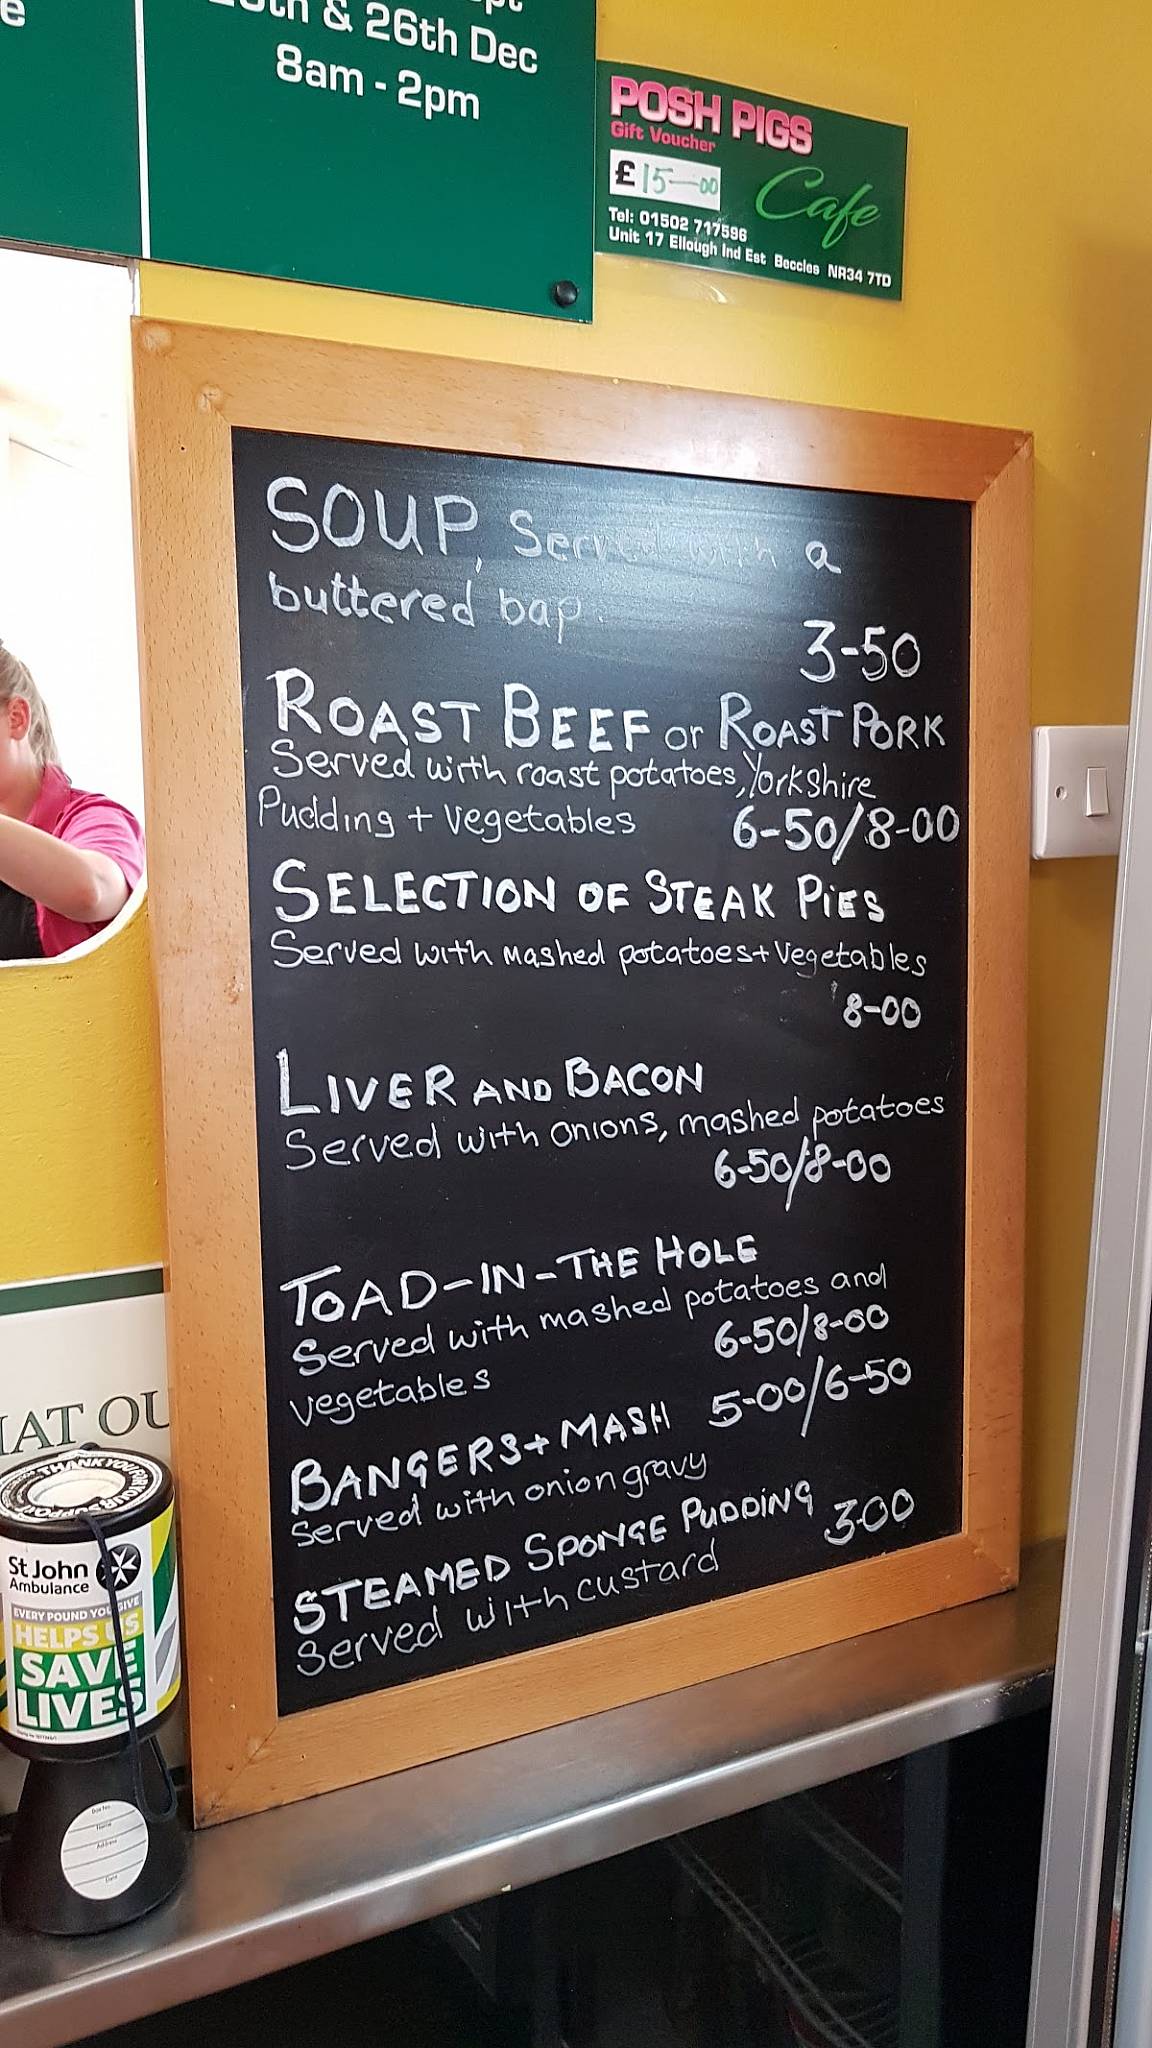 e
& 26th Dec
8am - 2pm
POSH PIGS
Gift Voucher
£ 15—00
Cafe
Tel: 01502 717596
Unit 17 Ellough Ind Est Beccles NR34 7TD
SOUP, Served with a
buttered bap.
3-50
ROAST BEEF or ROAST PORK
Served with roast potatoes, Yorkshire
Pudding + vegetables 6-50/8-00
SELECTION OF STEAK PiES
Served with mashed potatoes + vegetables
8-00
LIVER AND BACON
Served with onions, mashed potatoes
6-50/8-00
TOAD-IN-THE HOLE
Served with mashed potatoes and
vegetables 6-50/8-00
BANGERS + MASH 5-00/6-50
Served with onion gravy
STEAMED SPONGE PUDDING 3-00
Served with custard
HAT OU
THANK YOU FOR YOUR SUPPORT
St John
Ambulance
EVERY POUND YOU GIVE
HELPS US
SAVE
LIVES
Box No.
Name
Address
Date